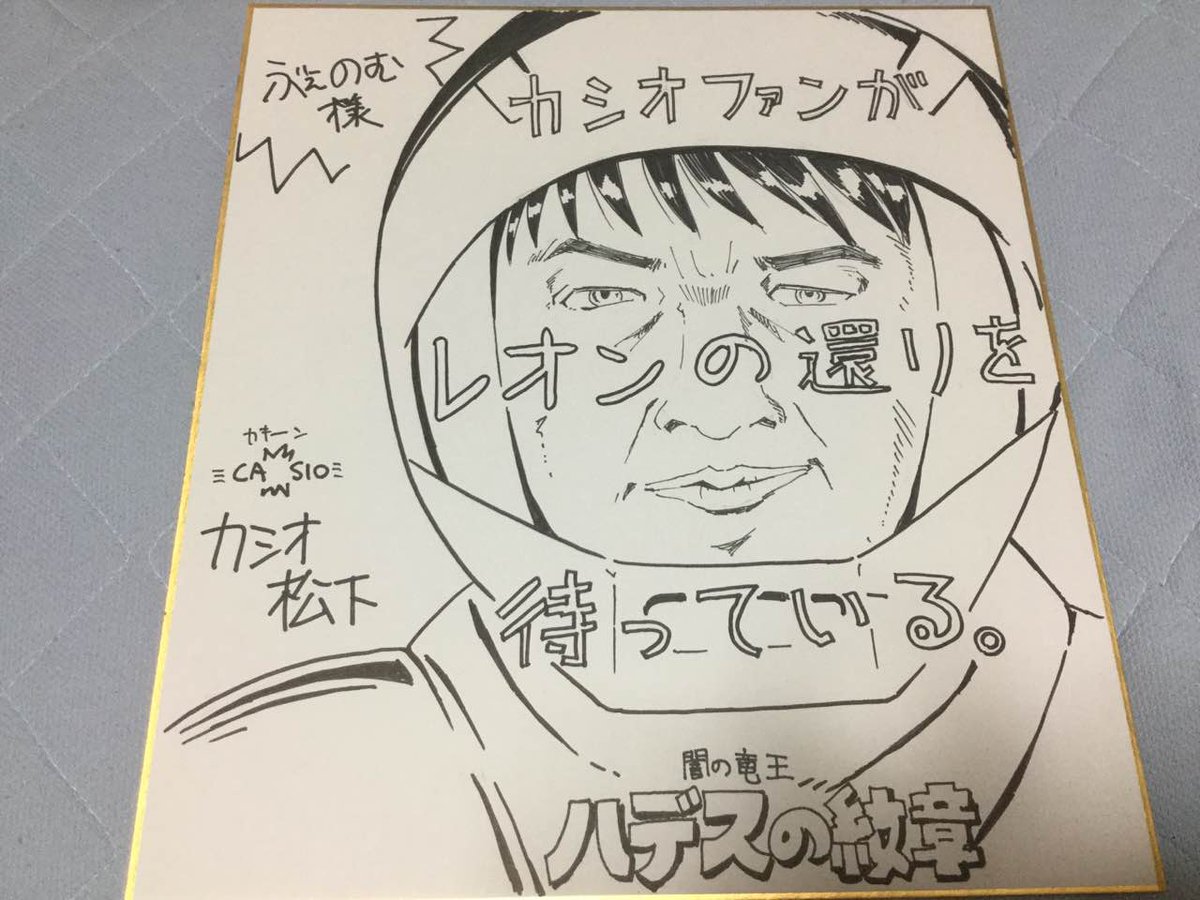 ぶぇのむ
様
カシオファンが
レオンの還りを
カキーン
CA SIO
カシオ
松下
待っている。
闇の竜王
ハデスの紋章